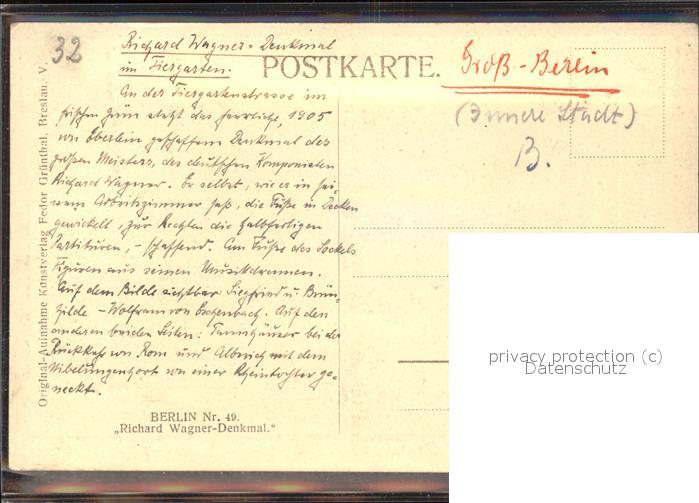 32
Richard Wagner-Denkmal
im Tiergarten.
POSTKARTE.
Groß-Berein
(Innere Stadt)
B.
An der Tiergartenstrasse im
frischen Grün steht das herrliche, 1905
von Eberlein geschaffene Denkmal des
großen Meisters, des deutschen Komponisten
Richard Wagner. Er selbst, wie er in sei-
nem Arbeitszimmer saß, die Füße in Decken
gewickelt, zur Rechten die halbfertigen
Partituren, - schaffend. Am Fuße des Sockels
Figuren aus seinen Musikdramen.
Auf dem Bilde sichtbar Siegfried u. Brün-
hilde - Wolfram von Eschenbach. Auf den
anderen beiden Seiten: Tannhäuser bei der
Rückkehr von Rom und Alberich mit dem
Nibelungenhort von einer Rheintochter ge-
neckt.
Original-Aufnahme Kunstverlag Fedor Grünthal, Breslau. V.
BERLIN Nr. 49.
„Richard Wagner-Denkmal."
privacy protection (c)
Datenschutz